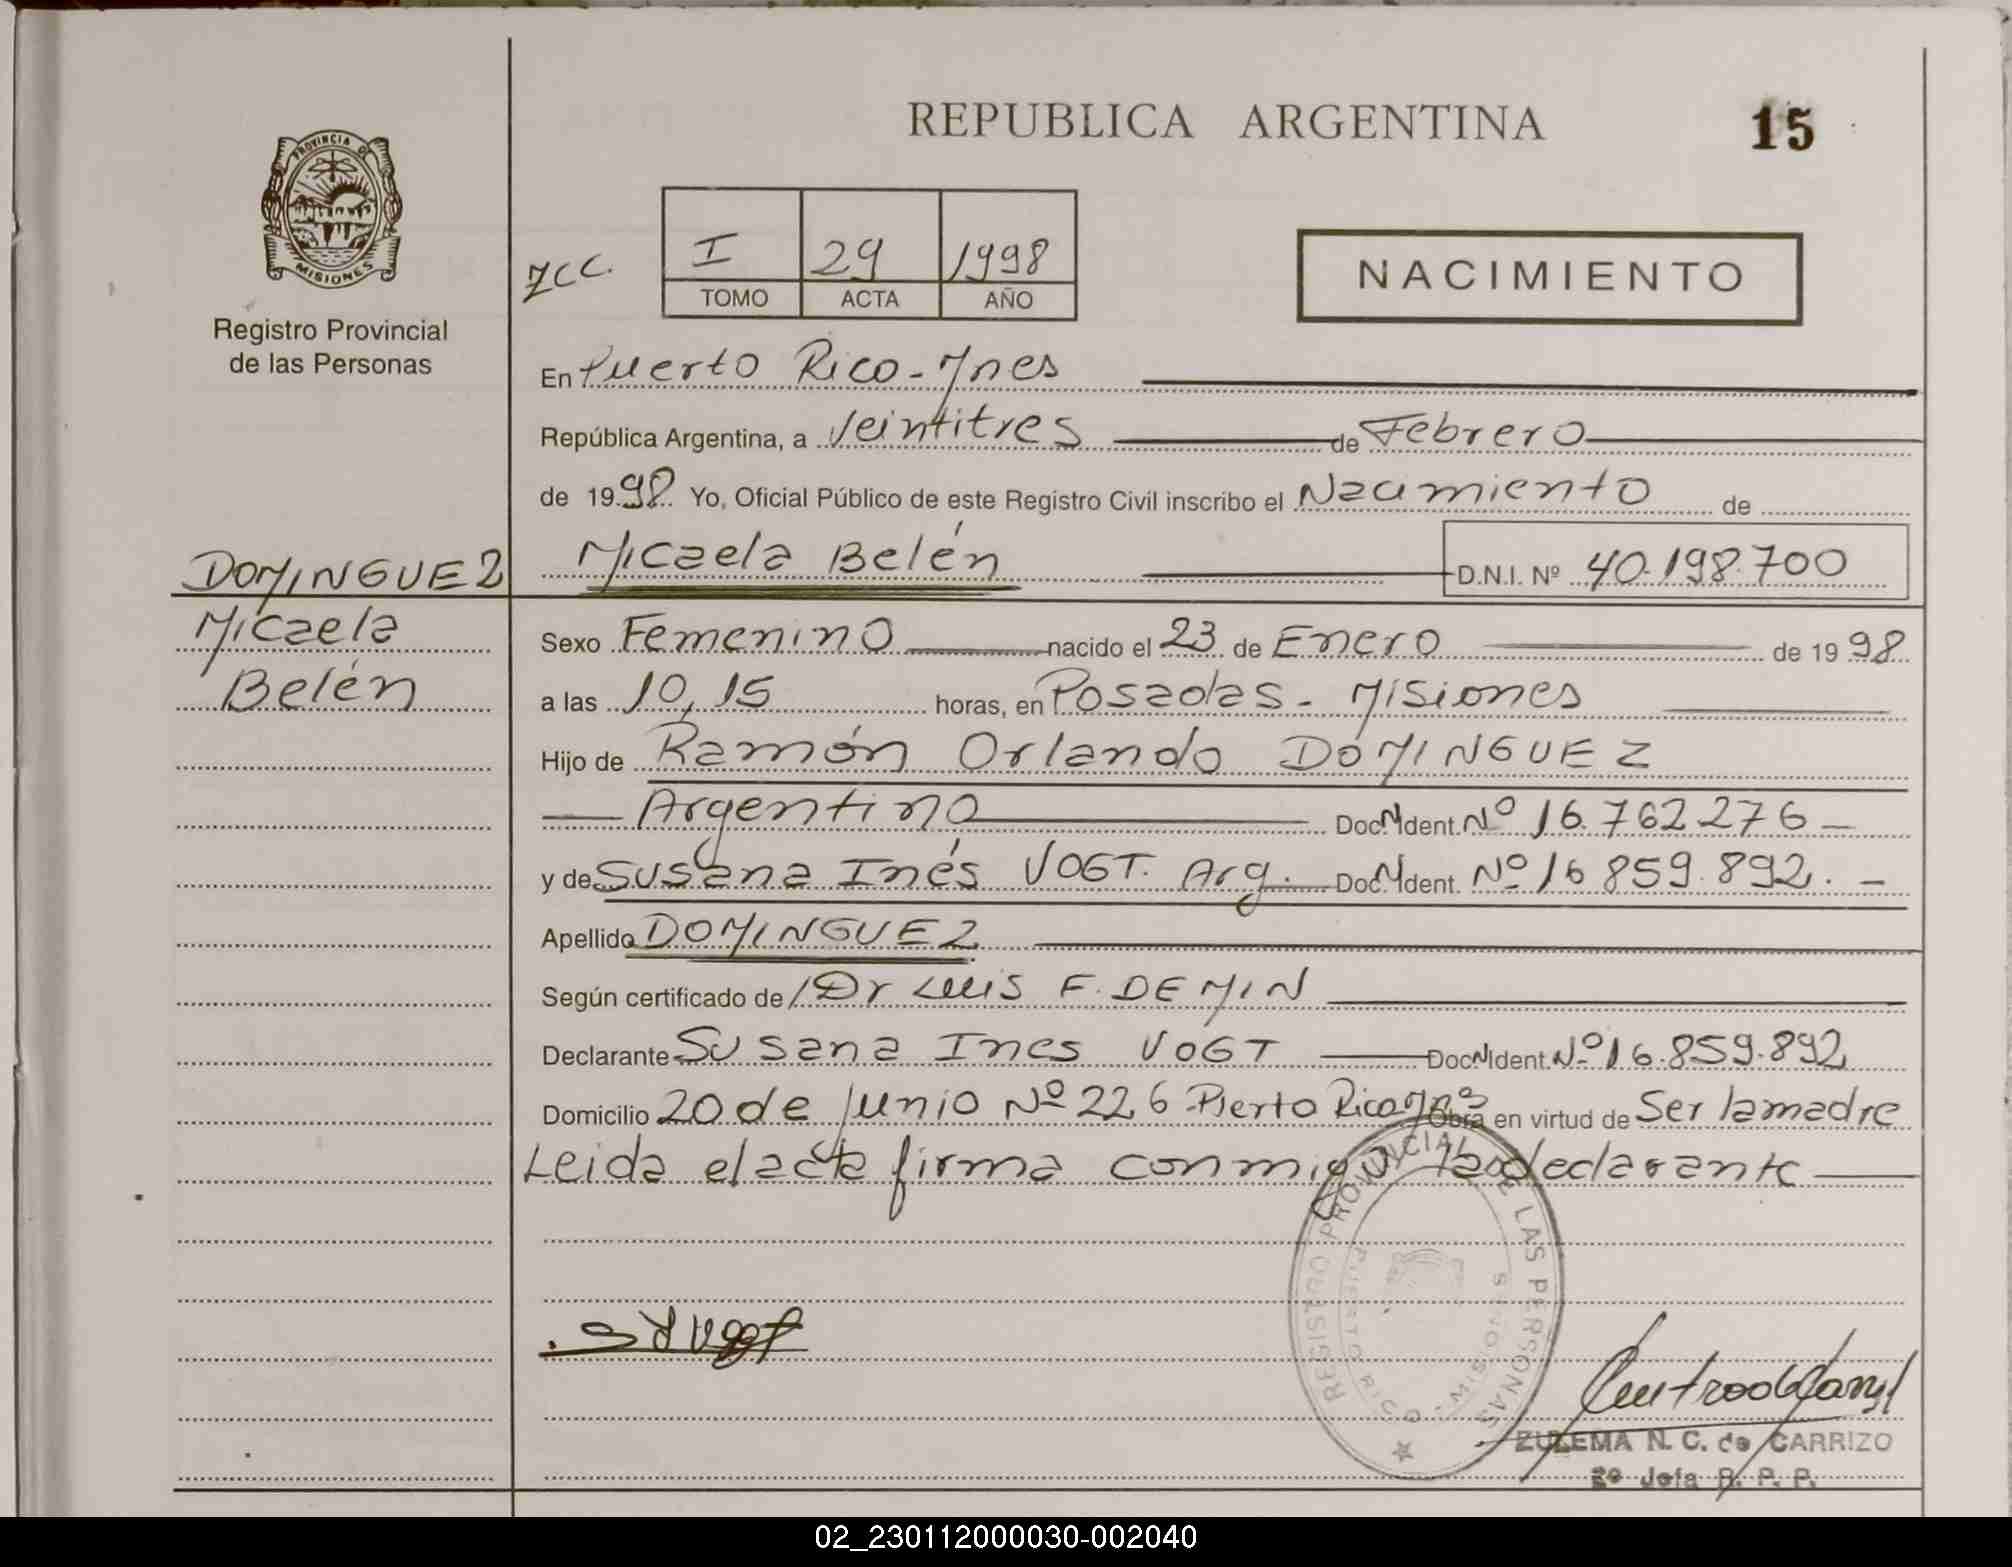 REPUBLICA ARGENTINA
15
PROVINCIA DE
MISIONES
Registro Provincial
de las Personas
ZCC.
I 29 1998
TOMO ACTA AÑO
NACIMIENTO
En Puerto Rico - Mnes
República Argentina, a Veintitres de Febrero
de 1998 Yo, Oficial Público de este Registro Civil inscribo el Nacimiento de
Micaela Belén D.N.I. Nº 40.198.700
DOMINGUEZ
Micaela
Belén
Sexo Femenino nacido el 23 de Enero de 1998
a las 10,15 horas, en Posadas - Misiones
Hijo de Ramón Orlando DOMINGUEZ
Argentino Doc. N Ident. Nº 16.762.276 -
y de Susana Inés VOGT. Arg. Doc. N Ident. Nº 16 859.892. -
Apellido DOMINGUEZ
Según certificado de Dr Luis F. DEMIN
Declarante Susana Ines VOGT Doc. N Ident. Nº 16.859.892
Domicilio 20 de Junio Nº 226 Pierto Rico Mns Obra en virtud de Ser la madre
Leida el acta firma conmigo la declarante
REGISTRO PROVINCIAL DE LAS PERSONAS
PUERTO RICO - MISIONES
ZULEMA N. C. de CARRIZO
2º Jefa R. P. P.
02_230112000030-002040